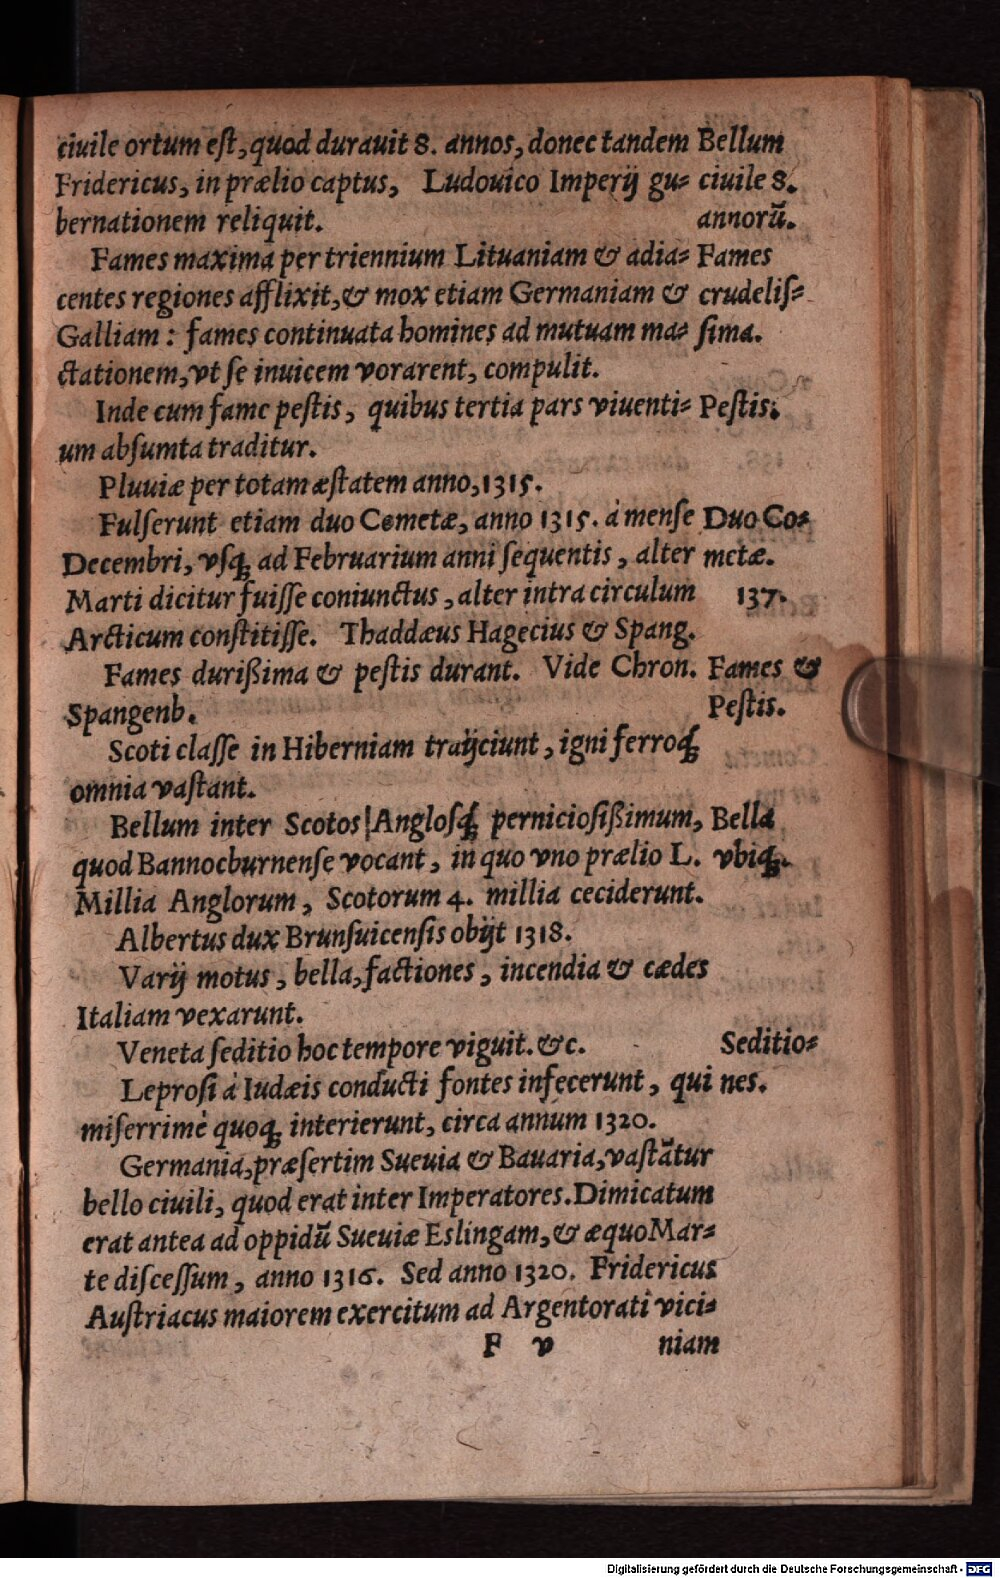 ciuile ortum eſt, quod durauit 8. annos, donec tandem
Fridericus, in prælio captus, Ludouico Imperÿ gu⸗
bernationem reliquit.
Bellum
ciuile 8.
annorū.
Fames maxima per triennium Lituaniam & adia⸗
centes regiones afflixit, & mox etiam Germaniam &
Galliam : fames continuata homines ad mutuam ma⸗
ctationem, vt ſe inuicem vorarent, compulit.
Fames
crudeliſ⸗
ſima.
Inde cum fame peſtis, quibus tertia pars viuenti⸗
um abſumta traditur.
Peſtis.
Pluuiæ per totam æſtatem anno, 1315.
Fulſerunt etiam duo Cometæ, anno 1315. à menſe
Decembri, vſq; ad Februarium anni ſequentis, alter
Marti dicitur fuiſſe coniunctus, alter intra circulum
Arcticum conſtitiſſe. Thaddæus Hagecius & Spang.
Duo Co⸗
metæ.
137.
Fames durißima & peſtis durant. Vide Chron.
Spangenb.
Fames &
Peſtis.
Scoti claſſe in Hiberniam traÿciunt, igni ferroq;
omnia vaſtant.
Bellum inter Scotos Angloſq; pernicioſißimum,
quod Bannocburnenſe vocant, in quo vno prælio L.
Millia Anglorum, Scotorum 4. millia ceciderunt.
Bella
vbiq;.
Albertus dux Brunſuicenſis obÿt 1318.
Varÿ motus, bella, factiones, incendia & cædes
Italiam vexarunt.
Veneta ſeditio hoc tempore viguit. &c.
Leproſi à Iudæis conducti fontes infecerunt, qui
miſerrimè quoq; interierunt, circa annum 1320.
Seditio⸗
nes.
Germania, præſertim Sueuia & Bauaria, vaſtātur
bello ciuili, quod erat inter Imperatores. Dimicatum
erat antea ad oppidū Sueuiæ Eslingam, & æquo Mar⸗
te diſceſſum, anno 1316. Sed anno 1320. Fridericus
Auſtriacus maiorem exercitum ad Argentorati vici⸗
F v niam
Digitalisierung gefördert durch die Deutsche Forschungsgemeinschaft - DFG